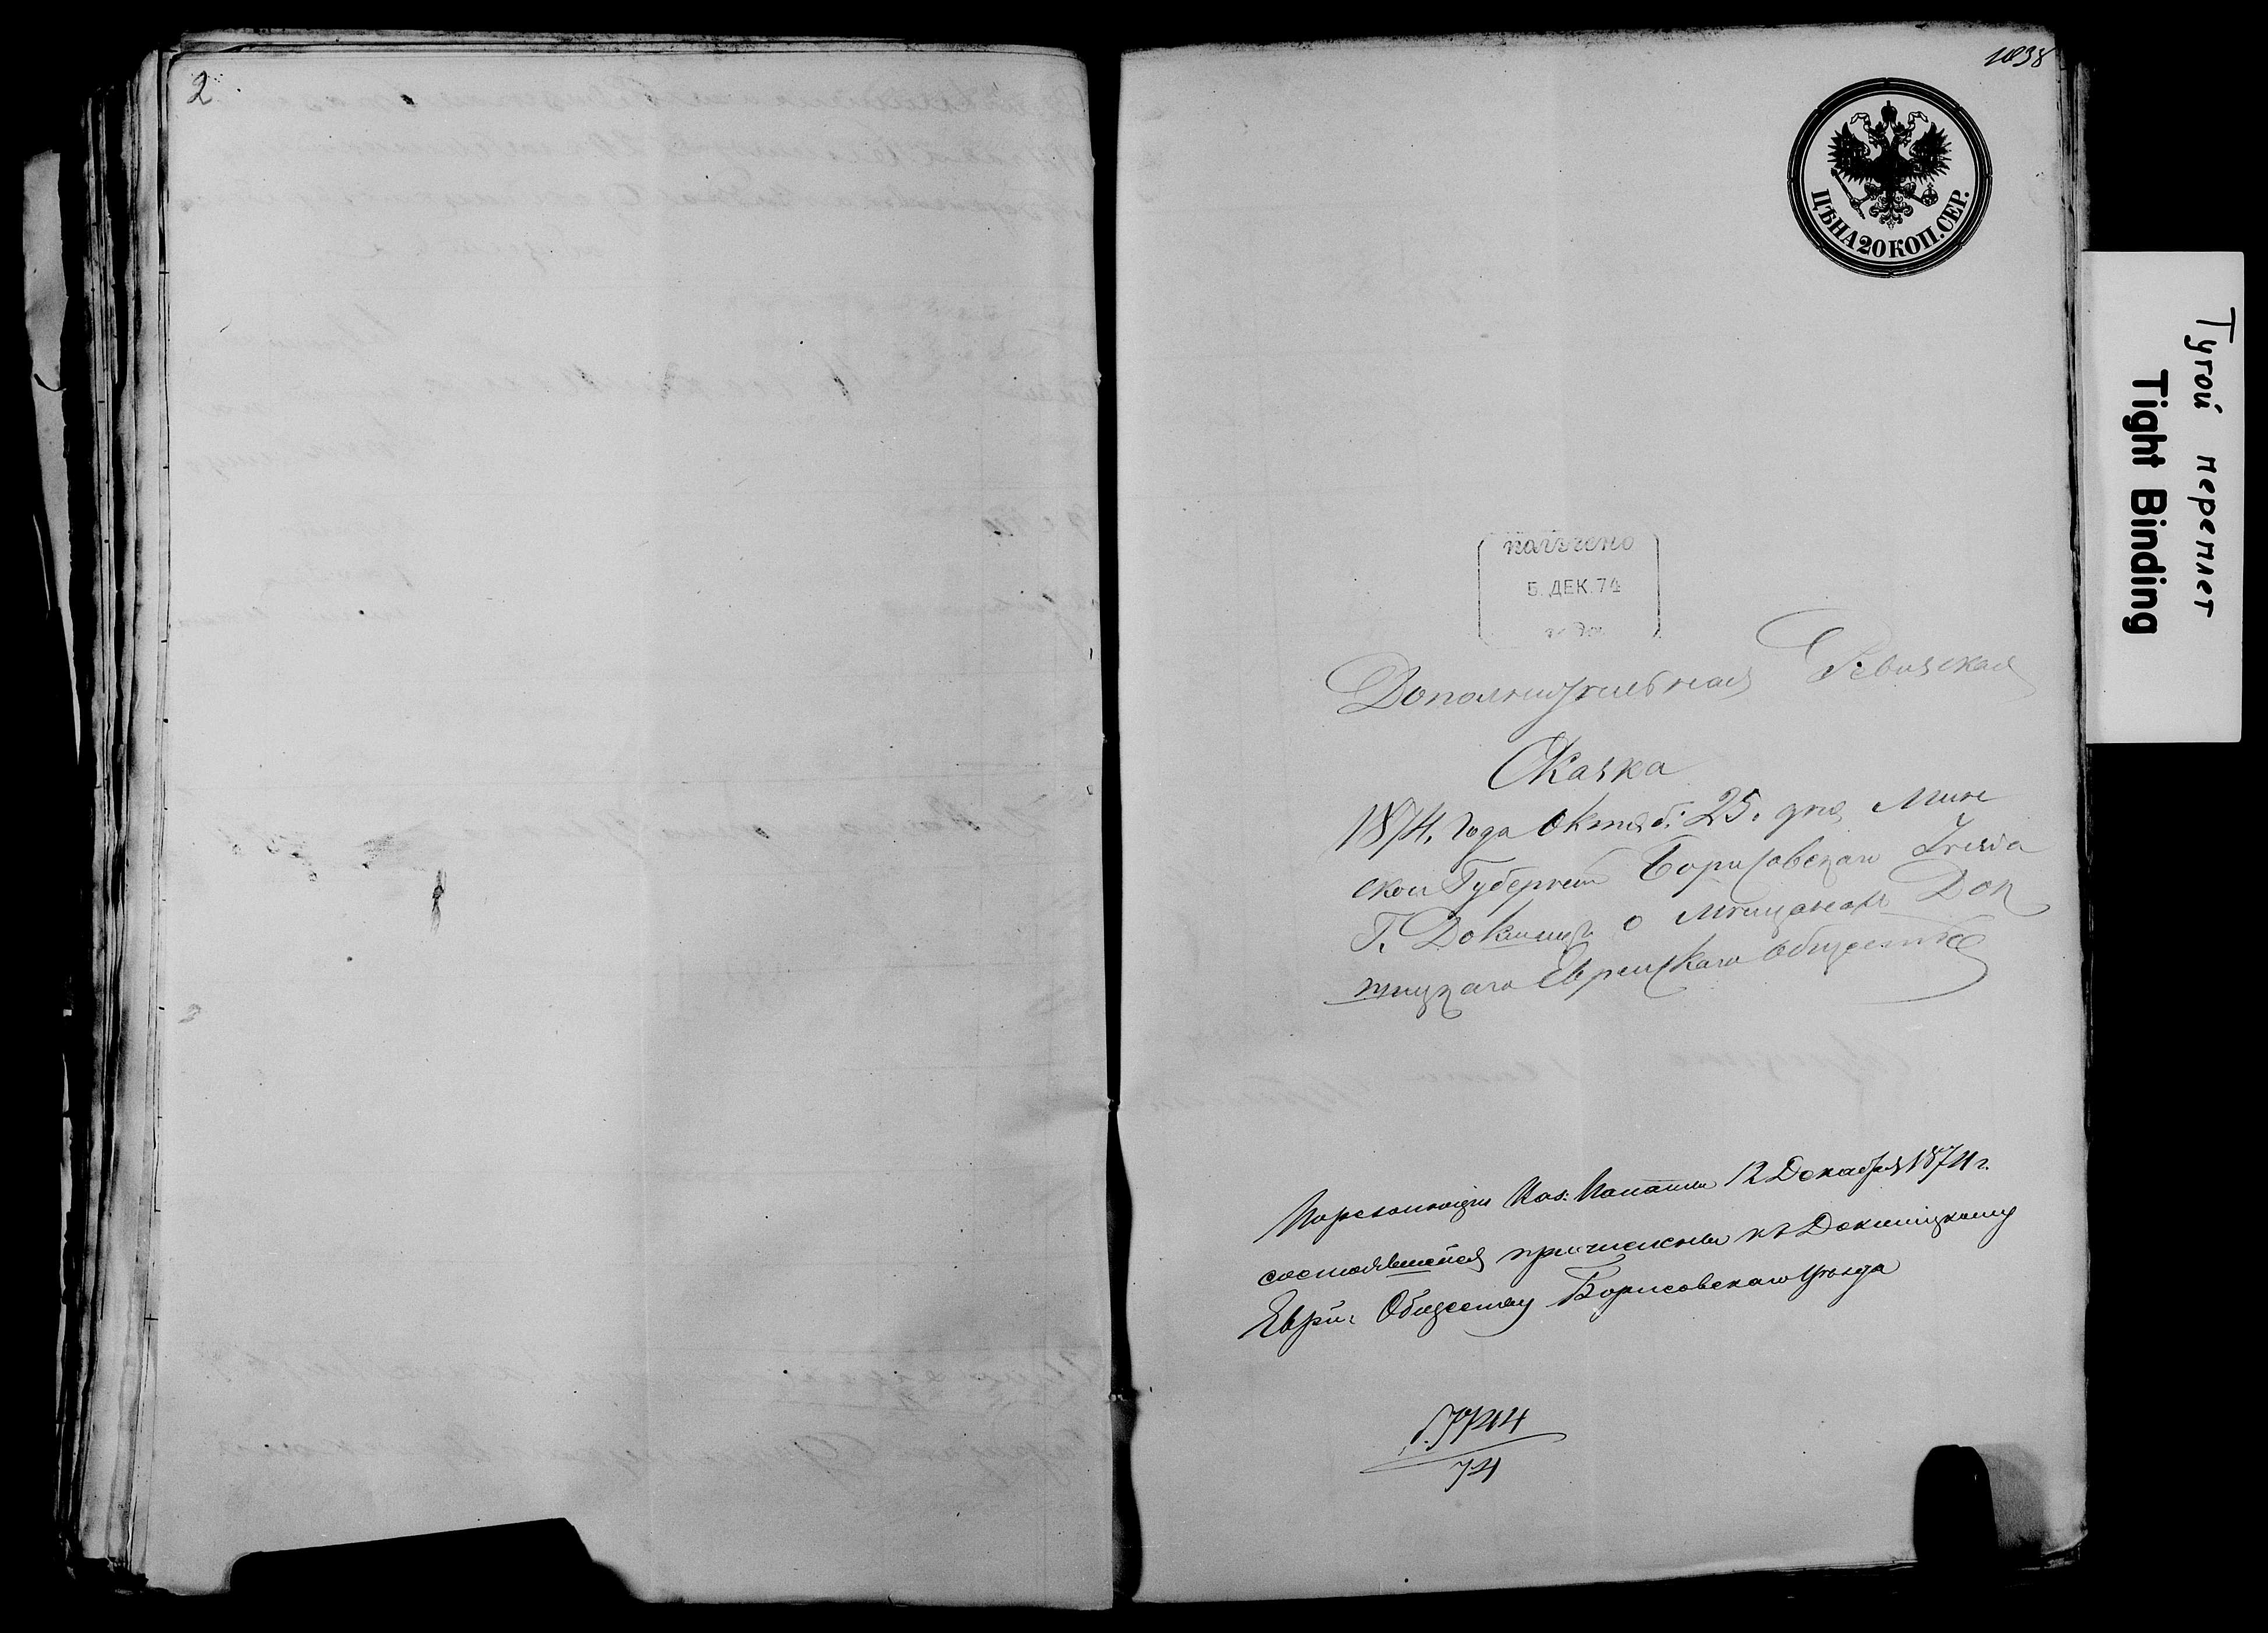 2
1038
ЦѢНА 20 КОП. СЕР.
Тугой переплет
Tight Binding
получено
5. ДЕК. 74
Дополнительная Ревизская
Сказка
1874. Года Октяб: 25. дня Минс
ской Губернии Борисовскаго Уезда
Г. Докшиц о мещанах Док
шицкаго Еврейскаго общества
Каз: Палаты 12 Декабря 1874 г.
состоявшейся причислены къ Докшицкому
Еврей: Обществу Борисовскаго уѣзда
74